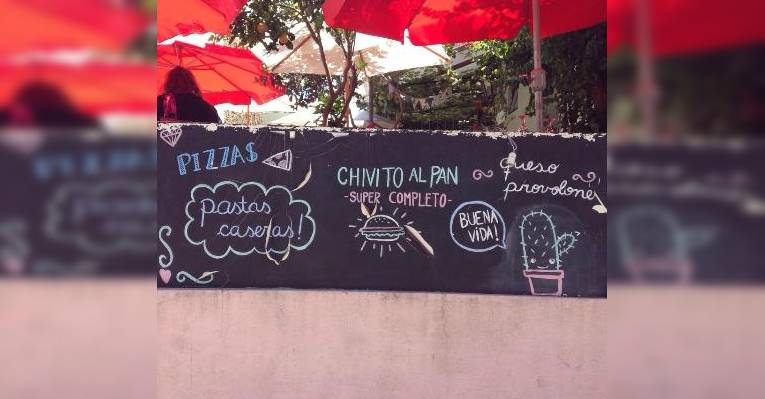 PIZZAS
pastas
caseras!
CHIVITO AL PAN
-SUPER COMPLETO-
BUENA
VIDA!
queso
provolone